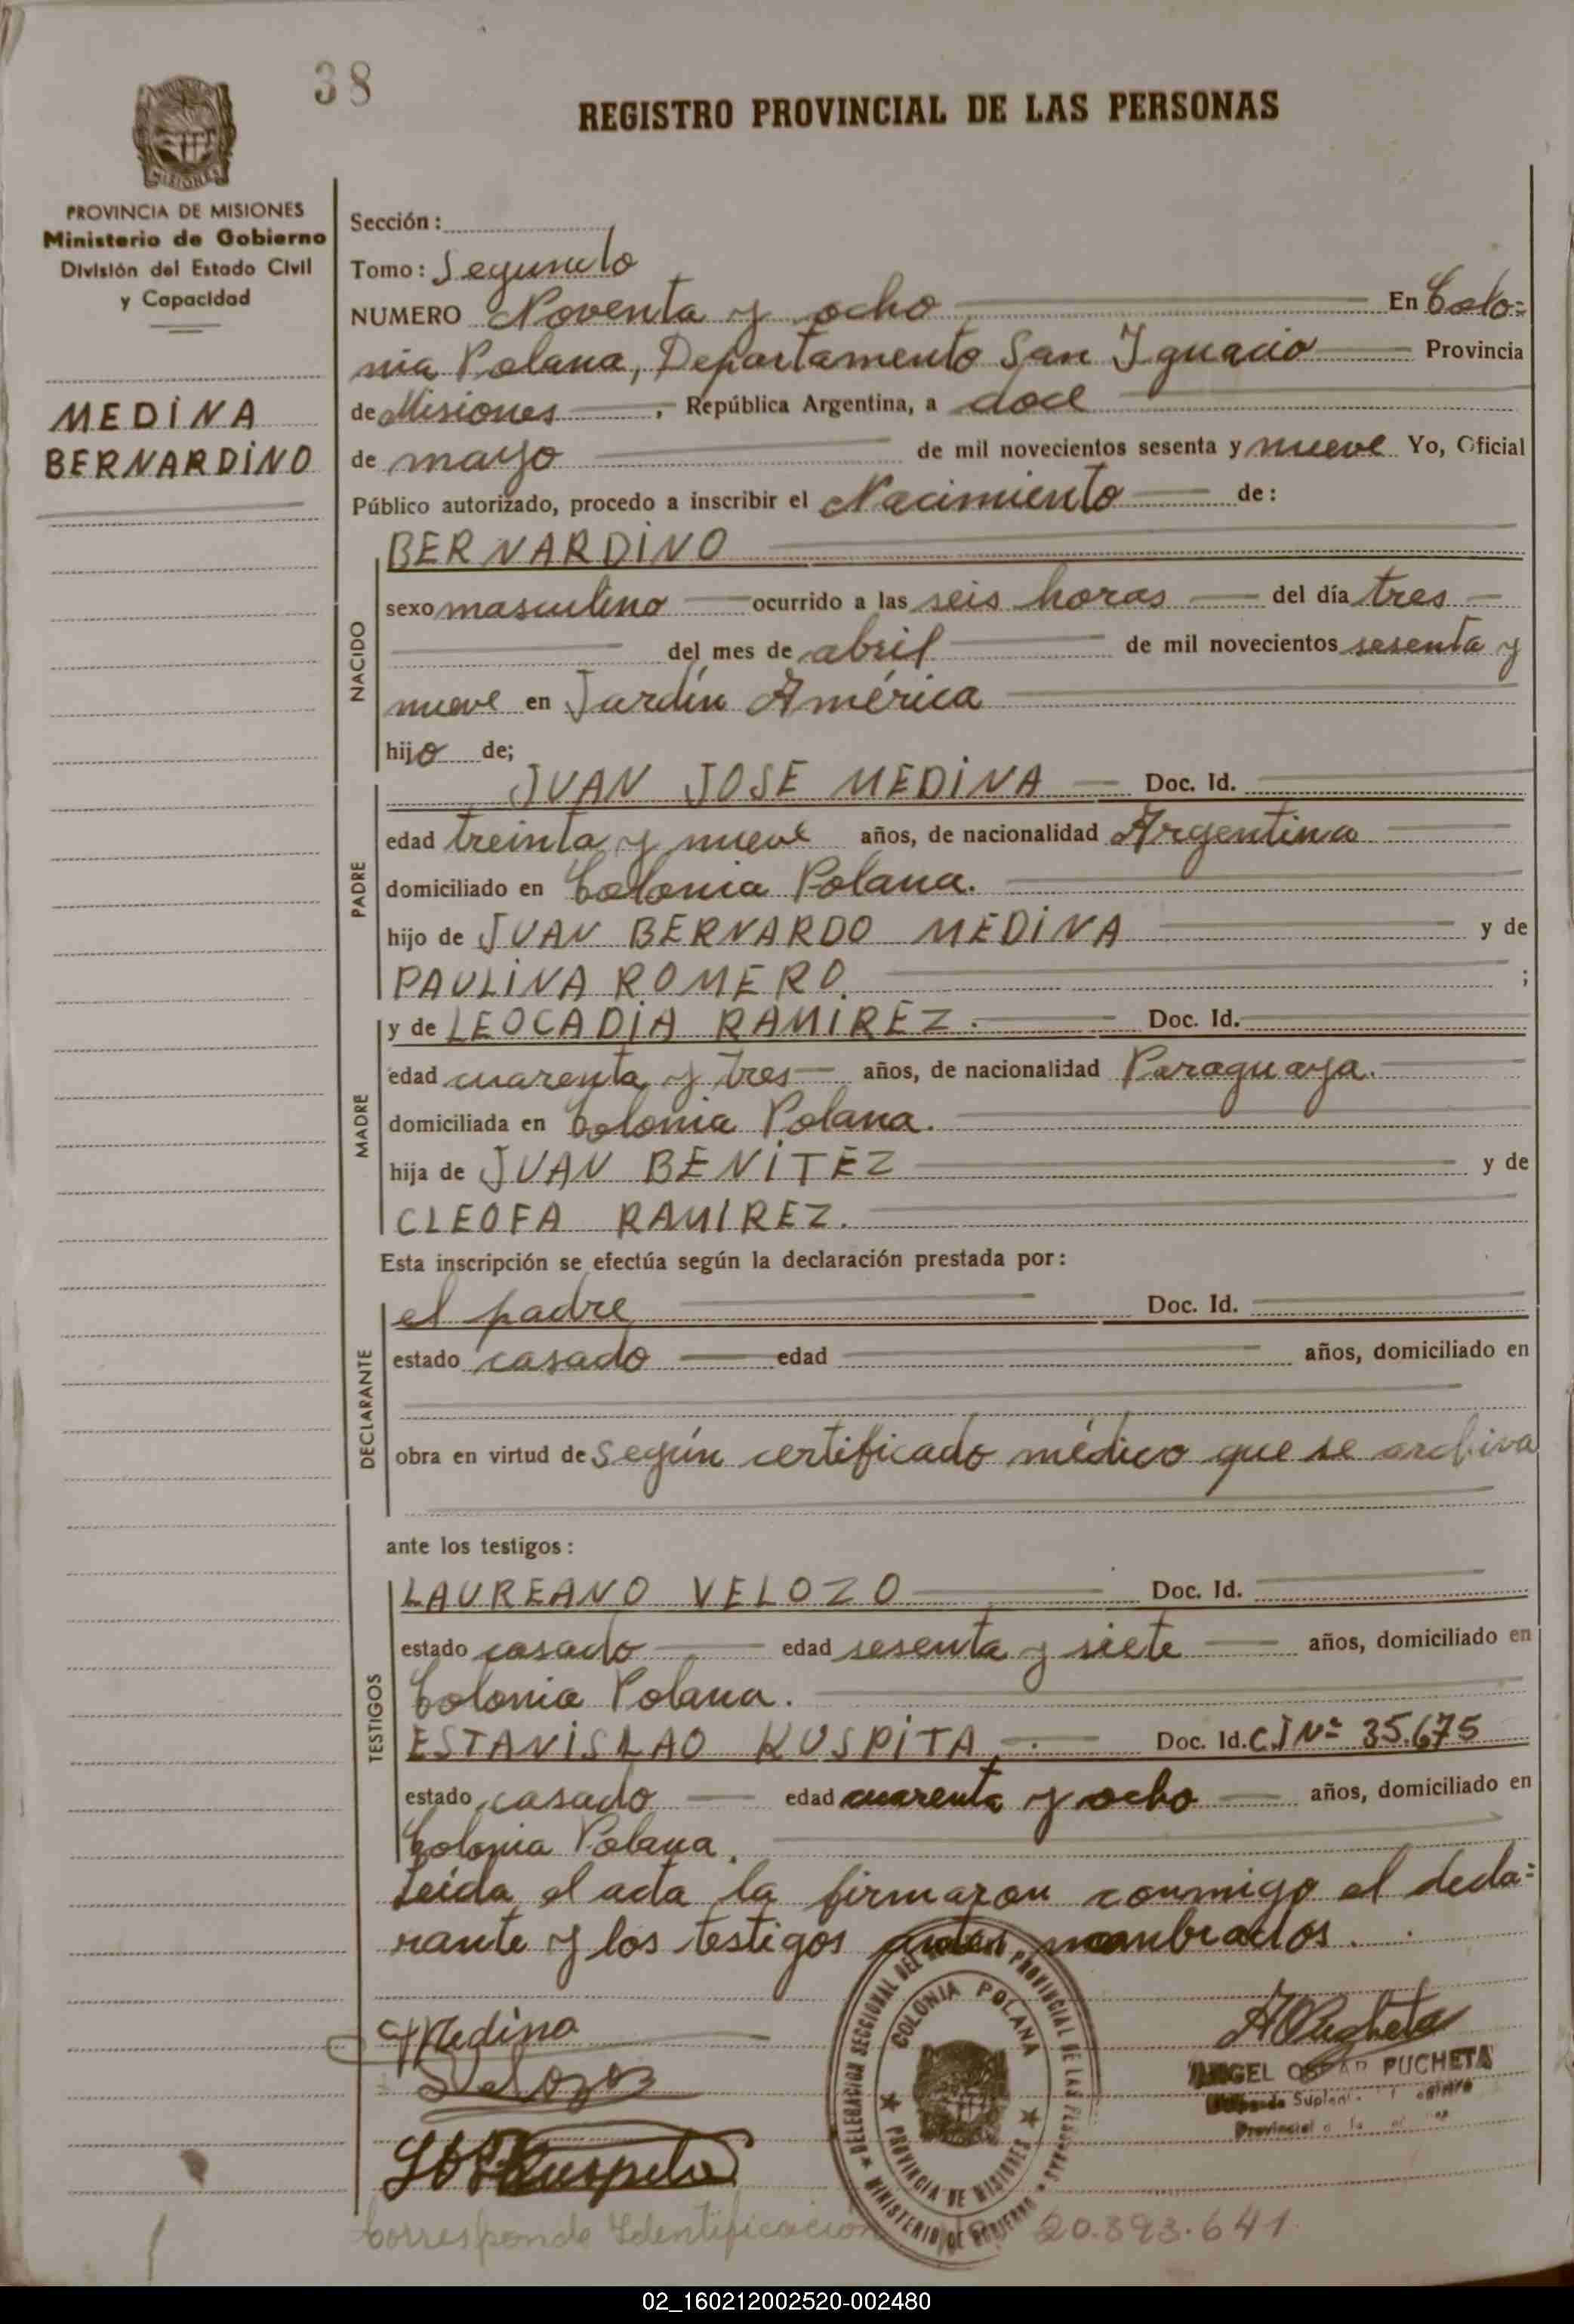 38
REGISTRO PROVINCIAL DE LAS PERSONAS
MISIONES
PROVINCIA DE MISIONES
Ministerio de Gobierno
División del Estado Civil
y Capacidad
MEDINA
BERNARDINO
Sección:
Tomo: Segundo
NUMERO Noventa y ocho En Colo=
nia Polana, Departamento San Ignacio Provincia
de Misiones, República Argentina, a doce
de mayo de mil novecientos sesenta y nueve Yo, Oficial
Público autorizado, procedo a inscribir el Nacimiento de:
NACIDO
BERNARDINO
sexo masculino ocurrido a las seis horas del día tres
del mes de abril de mil novecientos sesenta y
nueve en Jardín América
hijo de;
PADRE
JUAN JOSE MEDINA Doc. Id.
edad treinta y nueve años, de nacionalidad Argentina
domiciliado en Colonia Polana.
hijo de JUAN BERNARDO MEDINA y de
PAULINA ROMERO. ;
MADRE
y de LEOCADIA RAMIREZ. Doc. Id.
edad cuarenta y tres años, de nacionalidad Paraguaya.
domiciliada en Colonia Polana.
hija de JUAN BENITEZ y de
CLEOFA RAMIREZ.
Esta inscripción se efectúa según la declaración prestada por:
DECLARANTE
el padre Doc. Id.
estado casado edad años, domiciliado en
obra en virtud de Según certificado médico que se archiva
ante los testigos:
TESTIGOS
LAUREANO VELOZO Doc. Id.
estado casado edad sesenta y siete años, domiciliado en
Colonia Polana.
ESTANISLAO KUSPITA. Doc. Id. CI Nº 35.675
estado casado edad cuarenta y ocho años, domiciliado en
Colonia Polana.
Leída el acta la firmaron conmigo el decla=
rante y los testigos antes nombrados.
Medina
DELEGACION SECCIONAL DEL PROVINCIAL DE LAS PERSONAS
COLONIA POLANA
PROVINCIA DE MISIONES
MINISTERIO DE GOBIERNO
ANGEL OSCAR PUCHETA
Suplente
Provincial
Corresponde Identificación 20.393.641
02_160212002520-002480